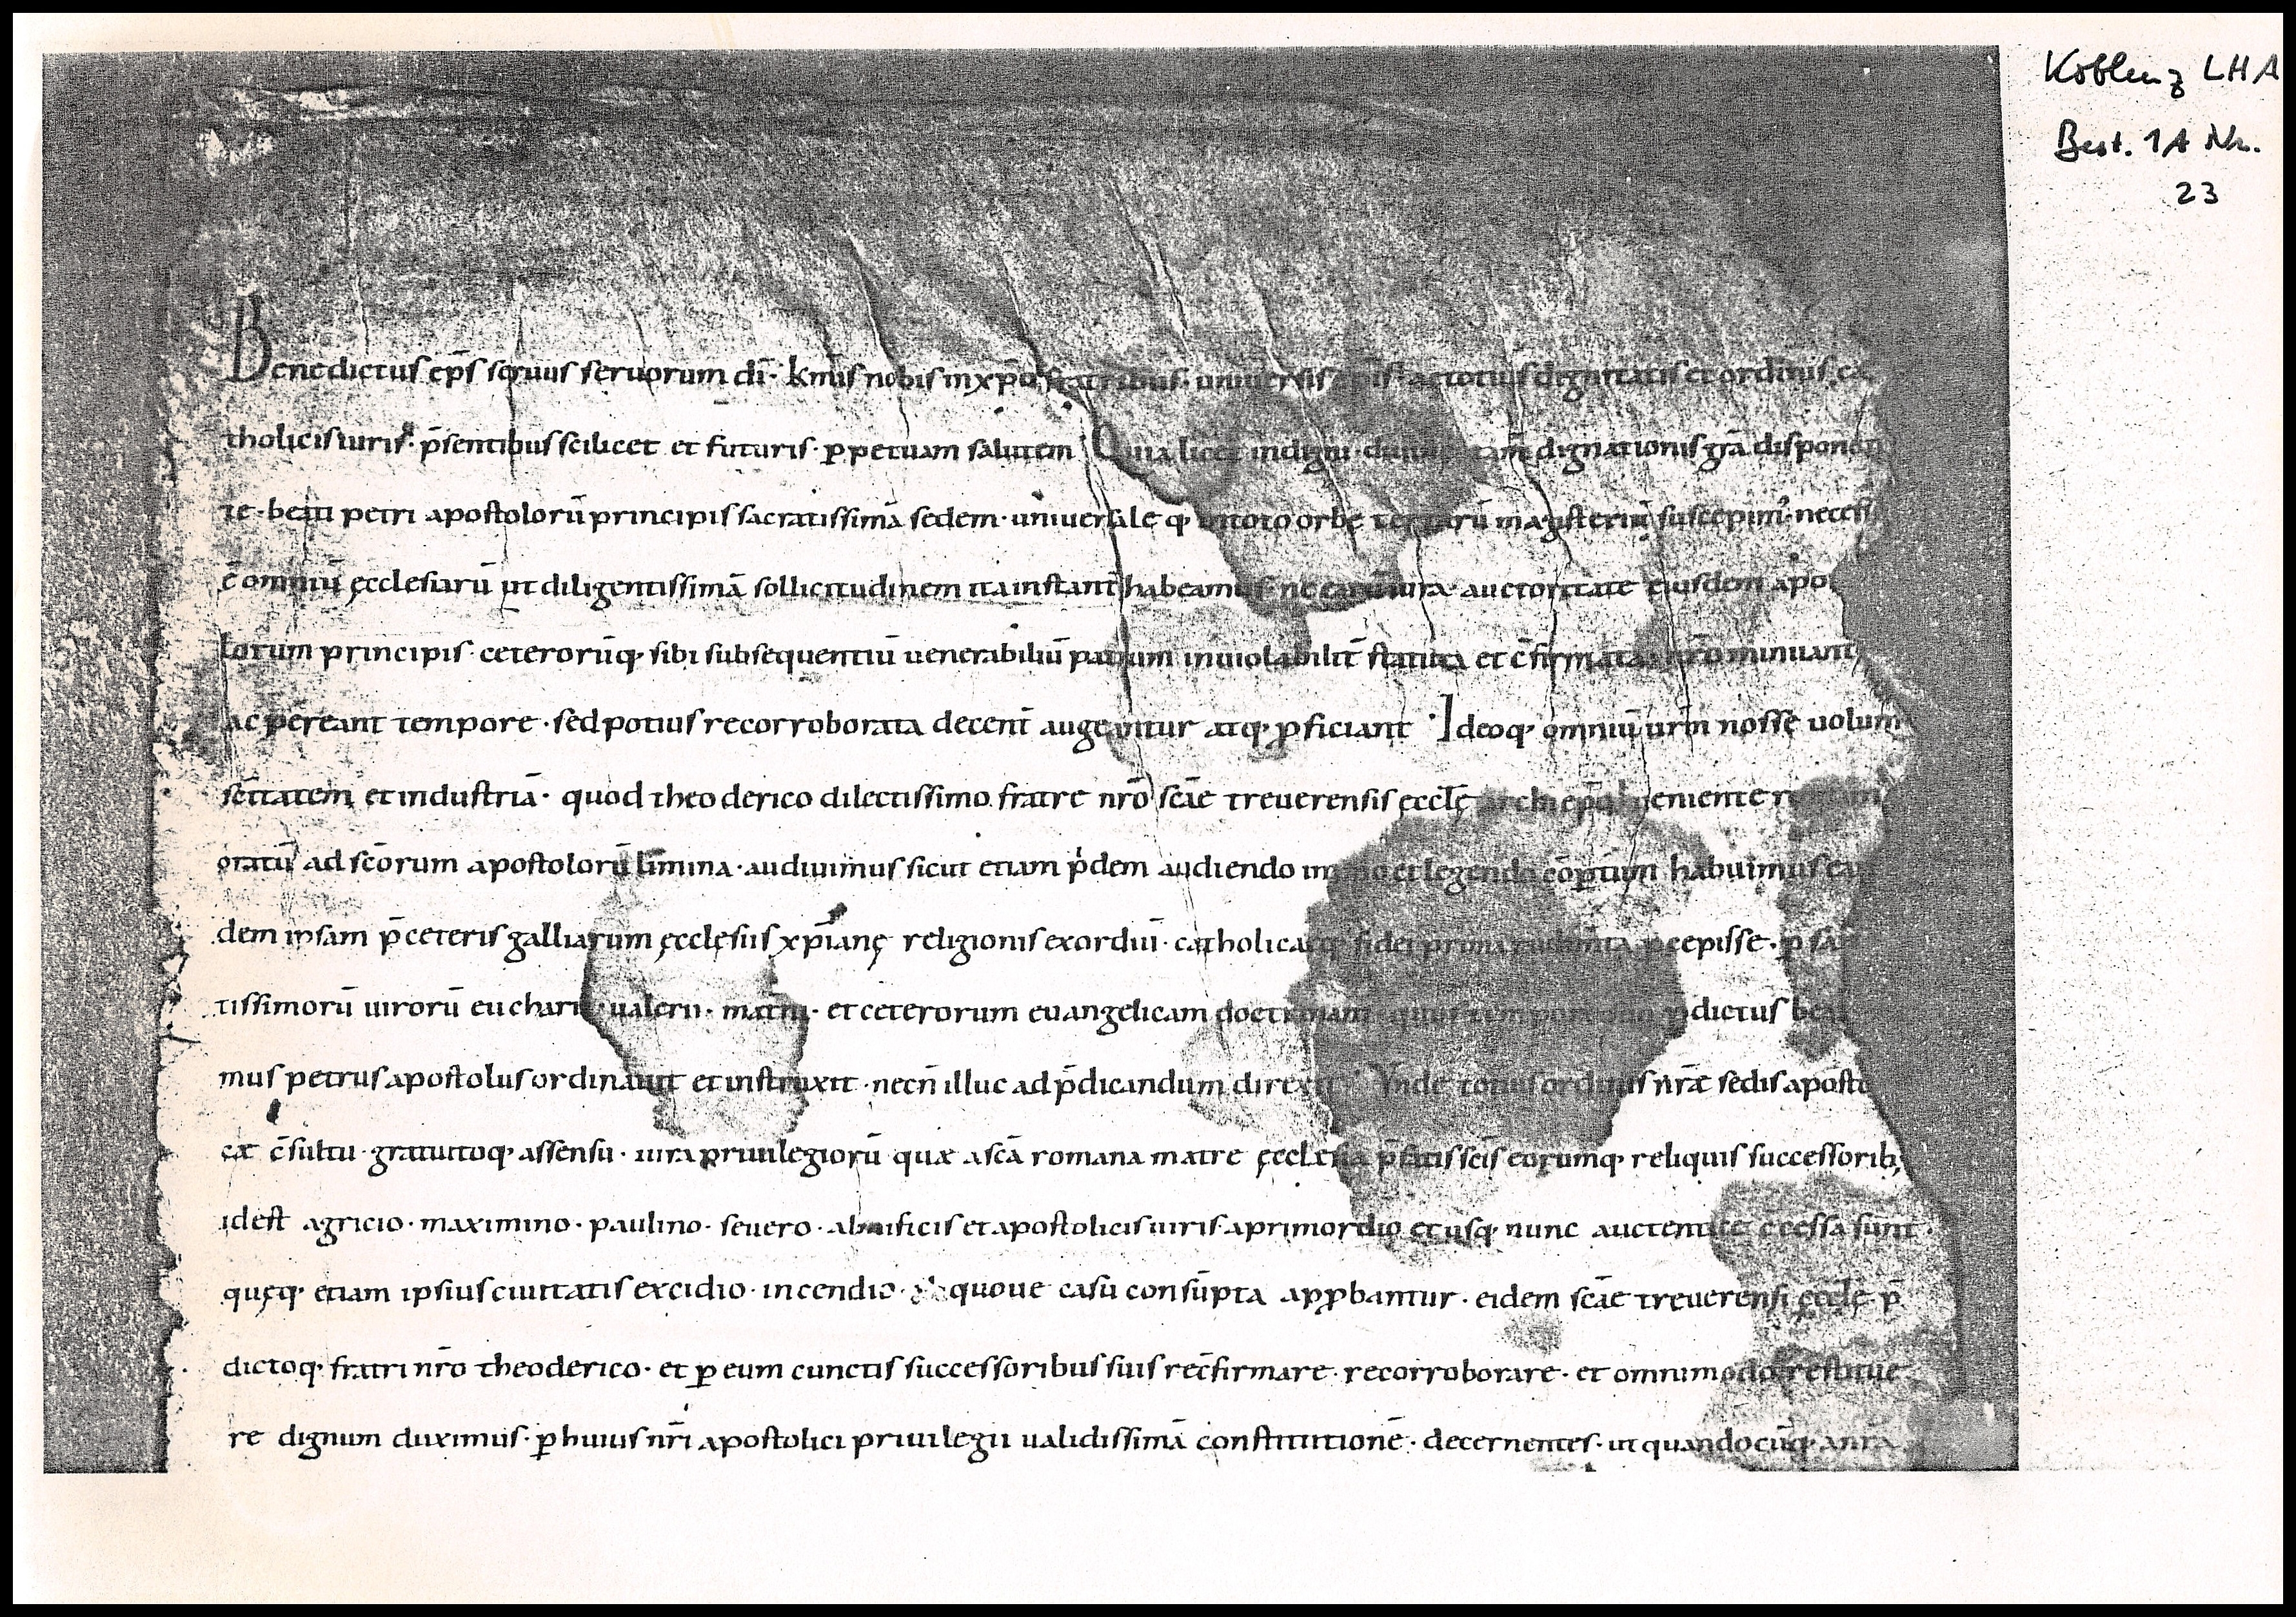 Koblenz LHA
Best. 1A Nr.
23
Benedictus ep̄s servus servorum dī· km̄is nobis in xp̄o fratribus· universis ep̄is· ac totius dignitatis et ordinis ca
tholicis viris· p̄sentibus scilicet et futuris· ꝑpetuam salutem· Quia licet indigni· dignationis grā disponen
te· beati petri apostolorū principis sacratissimā sedem· universale q· in toto orbe terrarū magisteriū suscepim᾽· necess
ē omniū ęcclesiarū ut diligentissimā sollicitudinem ita instant̄ habeamus· ne earū iura· auctoritate eiusdem apo
lorum principis· ceterorūq· sibi subsequentiū venerabiliū patrum inviolabilit̄ statuta et c̄firmata· minuant
ac pereant tempore· sed potius recorroborata decent̄ augeantur atq· ꝓficiant· Ideoq· omniū vrm̄ nosse volum
settatem et industriā· quod theoderico dilectissimo fratre nr̄o scāe treverensis ęcclę archiep̄o veniente
oratū ad scōrum apostolorū limina· audivimus sicut etiam p̄dem audiendo et legendo cōptum habuimus ean
dem ipsam p̄ ceteris galliarum ęcclesiis xp̄ianę religionis exordiū· catholicaeq· fidei prima rudim̄ta ꝑcepisse· ꝑ san
tissimorū virorū eucharii· valerii· mat̄ni· et ceterorum evangelicam doctrinam· quos tempore suo p̄dictus bea
mus petrus apostolus ordinavit et instruxit· necn̄ illuc ad p̄dicandum direxit· Vnde totius ordinis nr̄æ sedis aposto
cæ c̄sultu· gratuitoq· assensu· iura privilegiorū quæ a scā romana matre ęcclesia p̄fatis scīs eorumq· reliquis successorib;
id est agricio· maximino· paulino· severo· et apostolicis viris· a primordio et usq· nunc auctentice c̄cessa sunt·
quęq· etiam ipsius civitatis excidio· incendio· quove casu consūpta apꝓbantur· eidem scāe treverensi ęcclę p̄
dictoq· fratri nr̄o theoderico· et ꝑ eum cunctis successoribus suis rec̄firmare· recorroborare· et omnimodo restitue
re dignum duximus· ꝑ huius nr̄i apostolici privilegii validissimā constitutionē· decernentes· ut quandocūq· a nr̄a